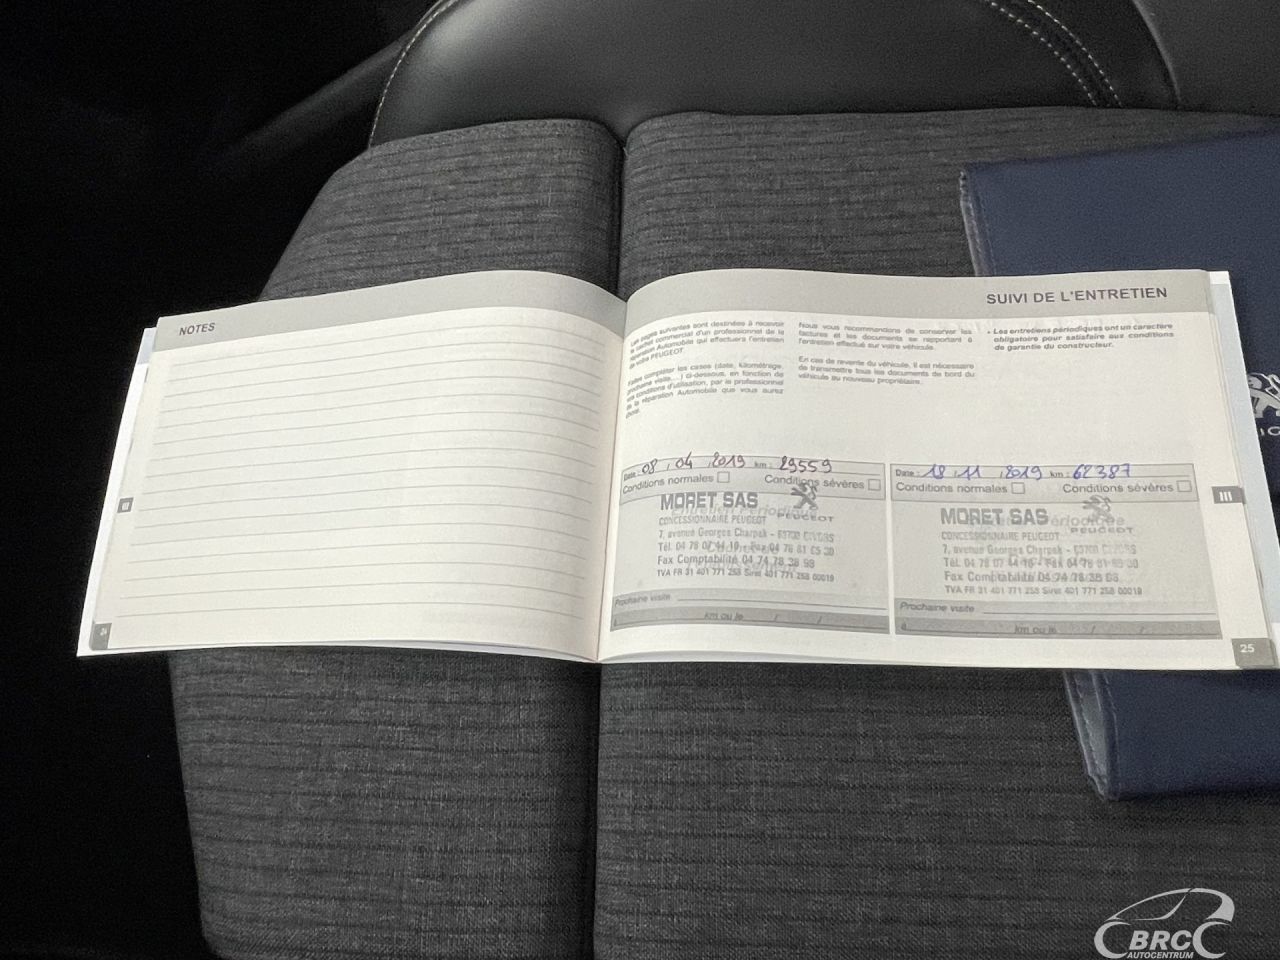 NOTES
SUIVI DE L'ENTRETIEN
Les pages suivantes sont destinées à recevoir
le cachet commercial d'un professionnel de la
réparation Automobile qui effectuera l'entretien
de votre PEUGEOT.
Faites compléter les cases (date, kilométrage,
prochaine visite,...) ci-dessous, en fonction de
vos conditions d'utilisation, par le professionnel
de la réparation Automobile que vous aurez
choisi.
Nous vous recommandons de conserver les
factures et les documents se rapportant à
l'entretien effectué sur votre véhicule.
En cas de revente du véhicule, il est nécessaire
de transmettre tous les documents de bord du
véhicule au nouveau propriétaire.
• Les entretiens périodiques ont un caractère
obligatoire pour satisfaire aux conditions
de garantie du constructeur.
Date : 08 / 04 / 2019 km : 29559
Conditions normales Conditions sévères
MORET SAS
CONCESSIONNAIRE PEUGEOT PEUGEOT
7, avenue Georges Charpak - 69700 GIVORS
Tél. 04 78 07 44 10 - Fax 04 78 81 65 30
Fax Comptabilité 04 74 78 38 98
TVA FR 31 401 771 258 Siret 401 771 258 00019
Prochaine visite
à km ou le / /
Date : 18 / 11 / 2019 km : 62387
Conditions normales Conditions sévères
MORET SAS
CONCESSIONNAIRE PEUGEOT PEUGEOT
7, avenue Georges Charpak - 69700 GIVORS
Fax Comptabilité 04 74 78 38 98
TVA FR 31 401 771 258 Siret 401 771 258 00019
Prochaine visite
à km ou le / /
24
III
25
BRC
AUTOCENTRUM